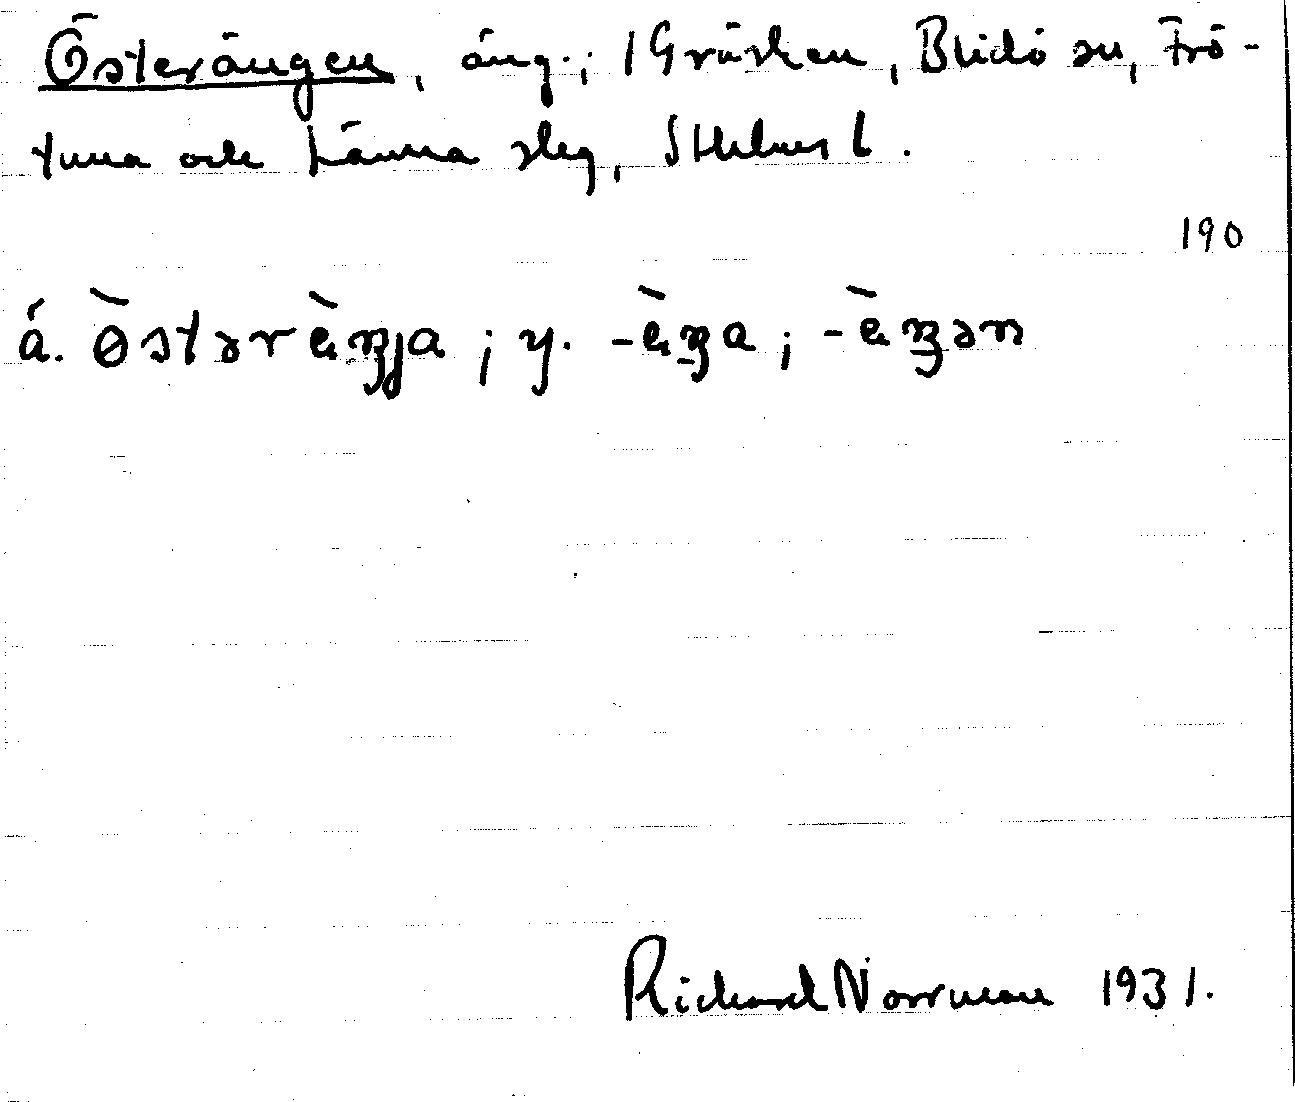 Österängen, äng.; i Gräsken, Blidö sn, Frö-
tuna och Länna slg, Sthlms l.
190
ä. ö̀stərὲŋja; y. -ὲŋa; -ὲŋən
Richard Norrman 1931.